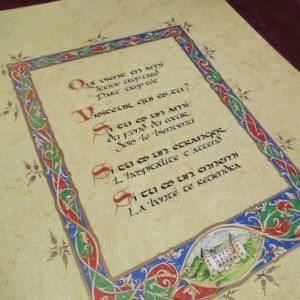 Qui vient en ami
Arrive trop tard
Part trop tôt
Visiteur, qui es-tu?
Si tu es un ami
Du fond du cœur
Sois le bienvenu
Si tu es un étranger
L'hospitalité t'attend
Si tu es un ennemi
La bonté te retiendra